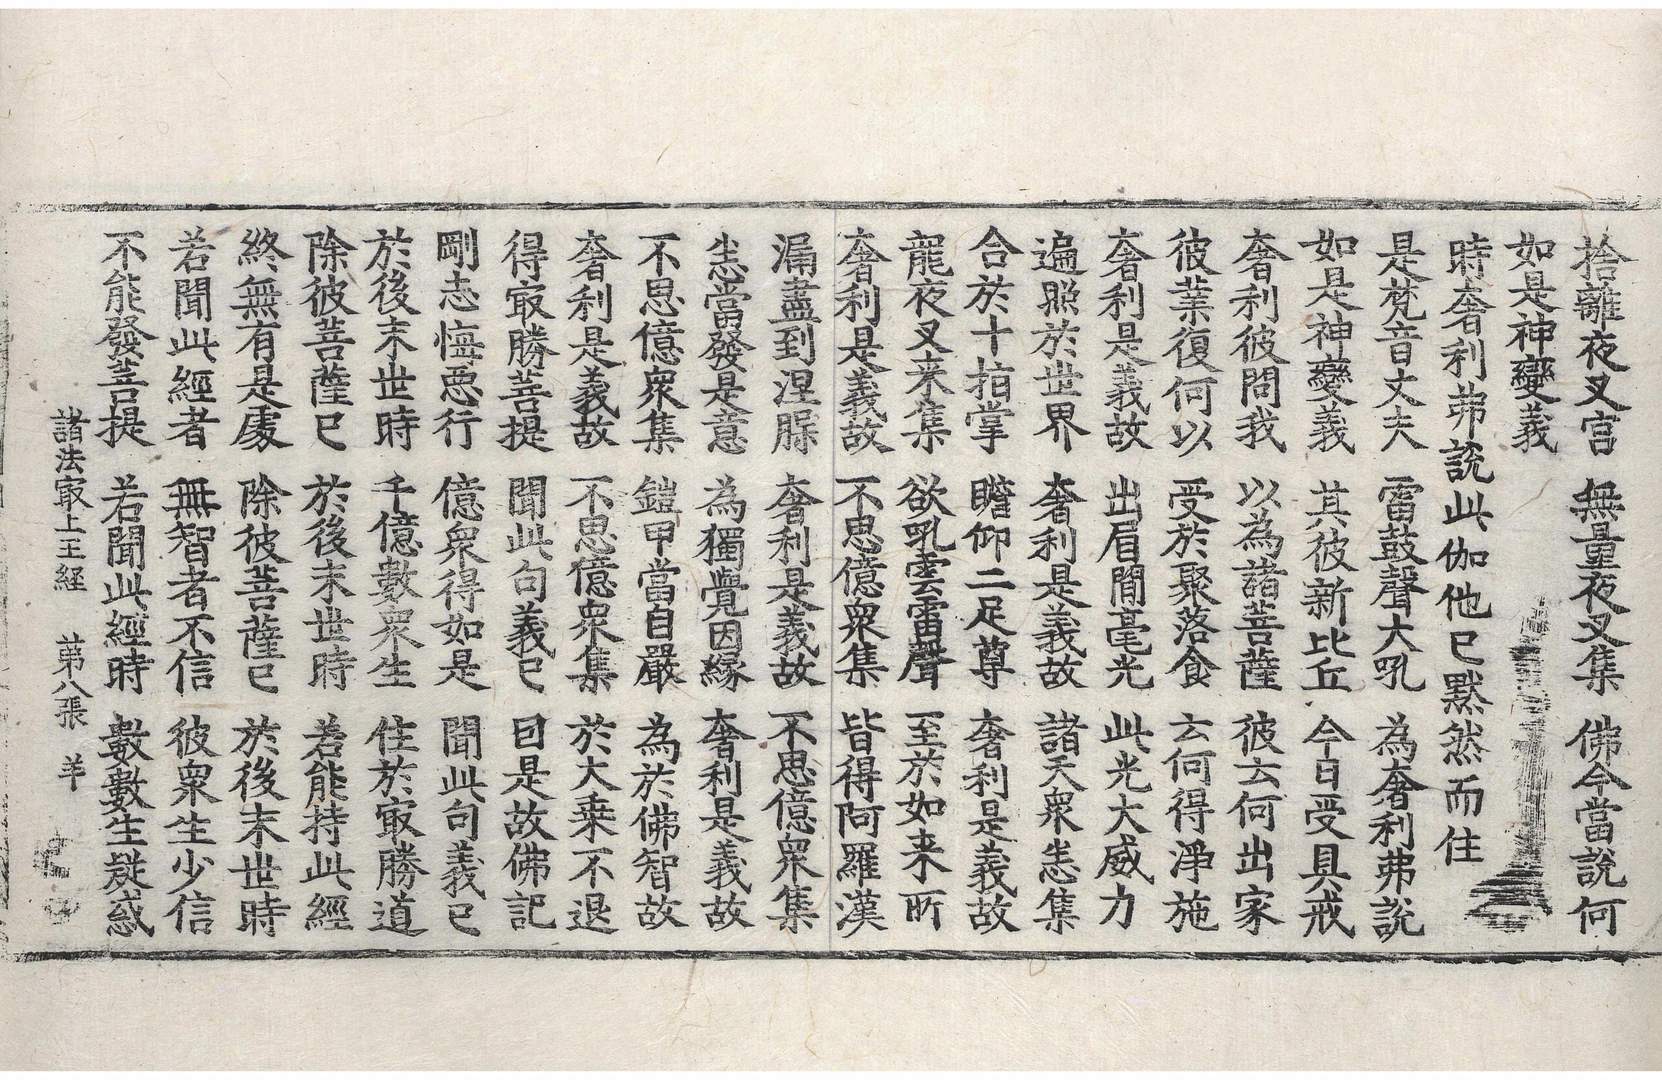 捨離夜叉宫　無量夜叉集　佛今當説何
如是神變義
時奢利弗說此伽他已黙然而住
是梵音丈夫　雷鼓聲大吼　為奢利弗説
如是神變義　其彼新比丘　今日受具戒
奢利彼問我　以為諸菩薩　彼云何出家
彼業復何以　受於聚落食　云何得淨施
奢利是義故　出眉間毫光　此光大威力
遍照於世界　奢利是義故　諸天衆恙集
合於十拍掌　瞻仰二足尊　奢利是義故
龍夜叉来集　欲吼雲雷聲　至於如来所
奢利是義故　不思億衆集　皆得阿羅漢
漏盡到涅脲　奢利是義故　不思億衆集
恙當發是意　為獨覺因縁　奢利是義故
不思億衆集　鎧甲當自嚴　為於佛智故
奢利是義故　不思億衆集　於大乗不退
得㝡勝菩提　聞此句義已　曰是故佛記
剛志悔惡行　億衆得如是　聞此句義已
於後末世時　千億數衆生　住於㝡勝道
除彼菩薩已　於後末世時　若能持此經
終無有是處　除彼菩薩已　於後末世時
若聞此經者　無智者不信　彼衆生少信
不能發菩提　若聞此經時　數數生疑惑
諸法㝡上王経　苐八張　羊